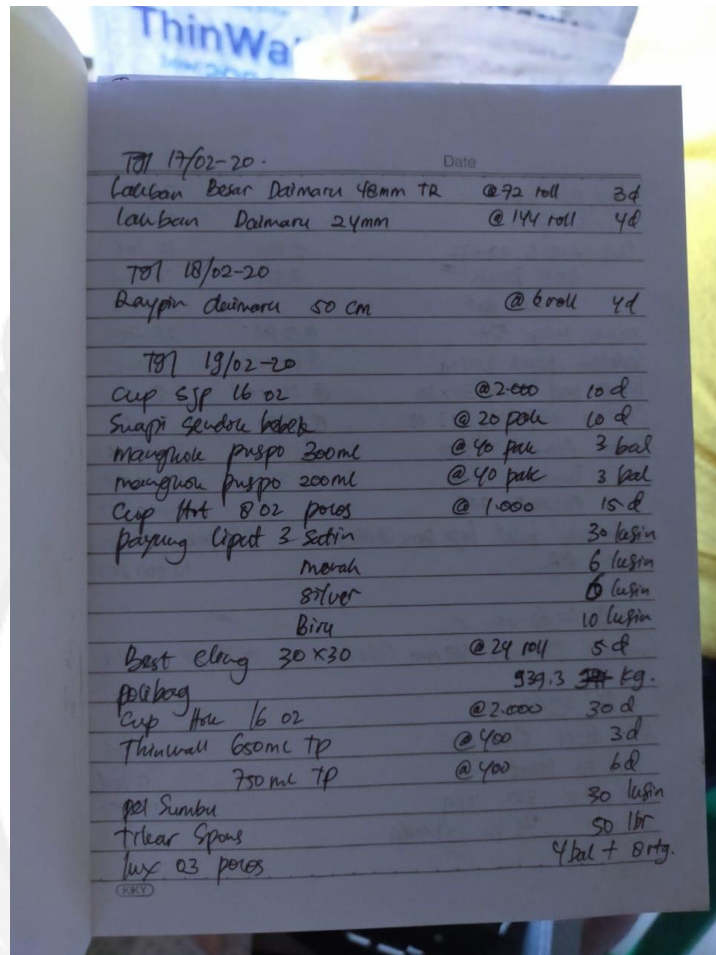 ThinWa
Date
Tgl 17/02-20.
Lakban Besar Daimaru 48mm TR @72 roll 3d
lakban Daimaru 24mm @ 144 roll 4d
Tgl 18/02-20
Raypin daimaru 50 cm @ 6 roll 4d
Tgl 19/02-20
Cup sjp 16 oz @2.000 10 d
Suapi Sendok bebek @ 20 pak 10 d
mangkok puspo 300ml @ 40 pak 3 bal
mangkok puspo 200ml @ 40 pak 3 bal
Cup Hot 8 oz polos @ 1.000 15 d
payung lipat 3 Satin 30 lusin
merah 6 lusin
silver 6 lusin
Biru 10 lusin
Best cling 30 x30 @ 24 roll 5 d
polibag 939.3 kg.
Cup Hok 16 oz @2.000 30 d
Thinwall 650ml TP @ 400 3d
750 ml TP @ 400 6d
pel Sumbu 30 lusin
Spons 50 lbr
lux 03 polos 4 bal + 8 rtg.
KIKY